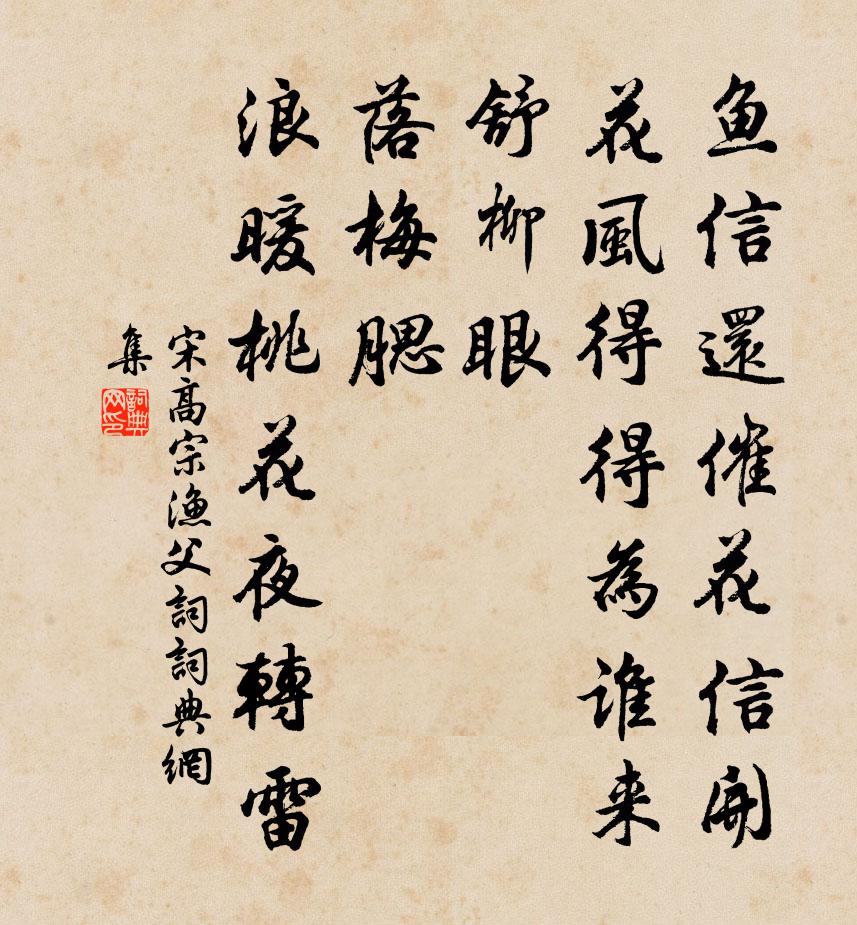 魚信還催花信開
花風得得為誰来
舒柳眼
落梅腮
浪暖桃花夜轉雷
宋高宗漁父詞詞典網
集
詞典
网印